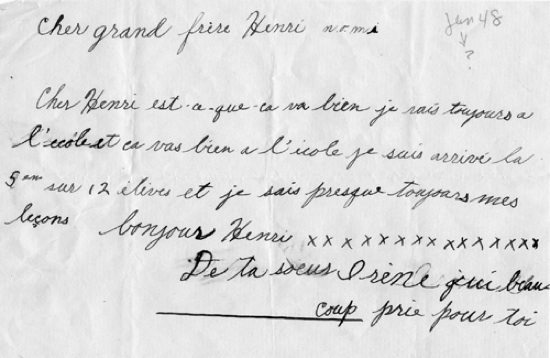 Cher grand frère Henri n.o.m.i
Jan 48
?
Cher Henri est-ce-que-ca va bien je vais toujours a
l'école et ca vas bien a l'école je suis arrivé la
9em sur 12 élèves et je sais presque toujours mes
leçons bonjour Henri x x x x x x x x x x x x x x x
De ta soeur Irène qui beau-
coup prie pour toi